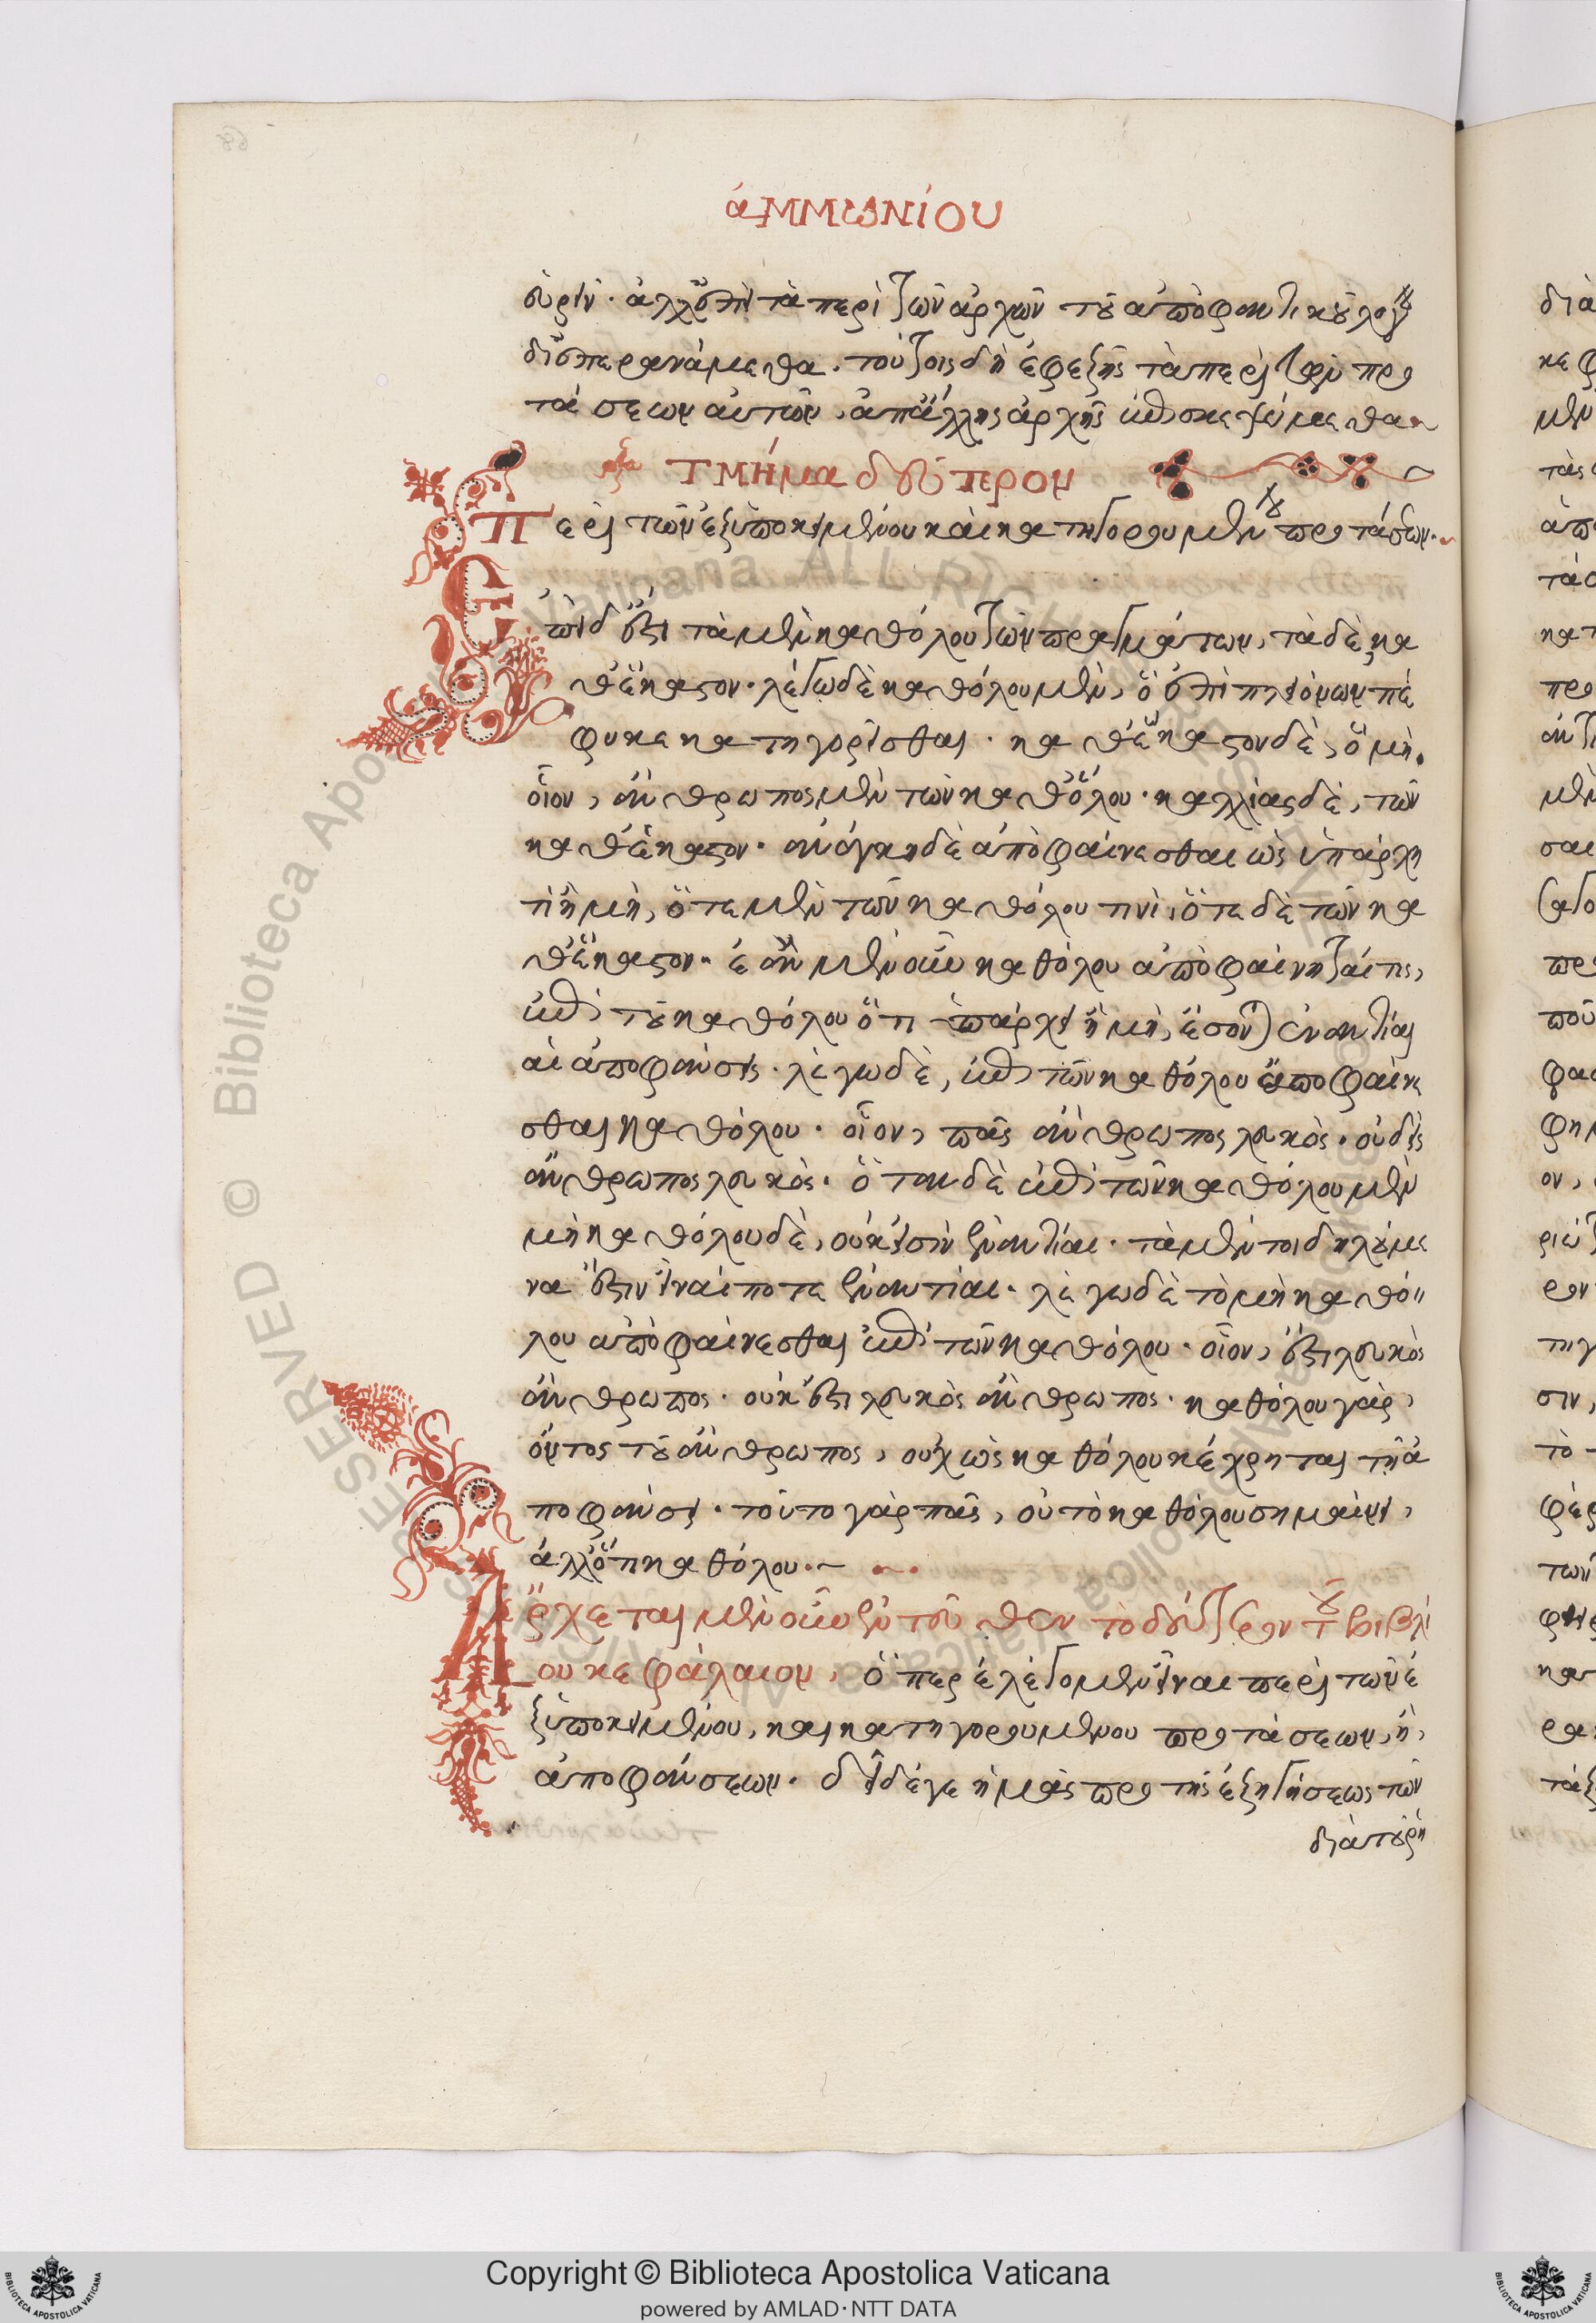 ἀμμωνίου
εὑρεῖν. ἀλλ' ἔστιν τὰ περὶ τῶν ἀρχῶν τοῦ ἀποφαντικοῦ λόγου
διαπερανάμεθα. τούτοις δὴ ἐφεξῆς τὰ περὶ τῶν προ
τάσεων αὐτῶν, ἀπ' ἄλλης ἀρχῆς ἐπισκεψώμεθα
τμήμα δεύτερον
Περὶ τῶν ἐξ ὑποκειμένου καὶ κατηγορουμένου προτάσεων.
Ἐπεὶ δ' ἔστι τὰ μὲν καθόλου τῶν πραγμάτων, τὰ δὲ κα
θ' ἕκαστον. λέγω δὲ καθόλου μὲν, ὃ ἐπὶ πλειόνων πέ
φυκε κατηγορεῖσθαι. καθ' ἕκαστον δὲ, ὃ μή.
οἷον, ἄνθρωπος μὲν τῶν καθόλου. καλλίας δὲ, τῶν
καθ' ἕκαστον. ἀνάγκη δὲ ἀποφαίνεσθαι ὡς ὑπάρχει
τὶ ἢ μὴ, ὁτὲ μὲν τῶν καθόλου τινὶ, ὁτὲ δὲ τῶν κα
θ' ἕκαστον. ἐὰν μὲν οὖν καθόλου ἀποφαίνηταί τις,
ἐπὶ τοῦ καθόλου ὅτι ὑπάρχει ἢ μὴ, ἔσονται ἐναντίαι
αἱ ἀποφάνσεις. λέγω δὲ, ἐπὶ τῶν καθόλου ἀποφαίνε
σθαι καθόλου. οἷον, πᾶς ἄνθρωπος λευκός. οὐδεὶς
ἄνθρωπος λευκός. ὅταν δὲ ἐπὶ τῶν καθόλου μὲν
μὴ καθόλου δὲ, οὐκ εἰσὶν ἐναντίαι. τὰ μέντοι δηλούμε
να ἔστιν εἶναί ποτε ἐναντίαι. λέγω δὲ τὸ μὴ καθό"
λου ἀποφαίνεσθαι ἐπὶ τῶν καθόλου. οἷον, ἔστι λευκὸς
ἄνθρωπος. οὐκ ἔστι λευκὸς ἄνθρωπος. καθόλου γὰρ,
ὄντος τοῦ ἄνθρωπος, οὐχ ὡς καθόλου κέχρηται τῇ ἀ
ποφάνσει. τοῦτο γὰρ πᾶς, οὐ τὸ καθόλου σημαίνει,
ἀλλ' ὅτι καθόλου.
Ἄρχεται μὲν οὖν ἐντεῦθεν τὸ δεύτερον τοῦ βιβλί
ου κεφάλαιον, ὅπερ ἐλέγομεν εἶναι περὶ τῶν ἐ
ξ ὑποκειμένου, καὶ κατηγορουμένου προτάσεων, ἢ,
ἀποφάνσεων. δεῖ δέ γε ἡμᾶς πρὸ τῆς ἐξηγήσεως τῶν
διὰ τοῦ ῥη